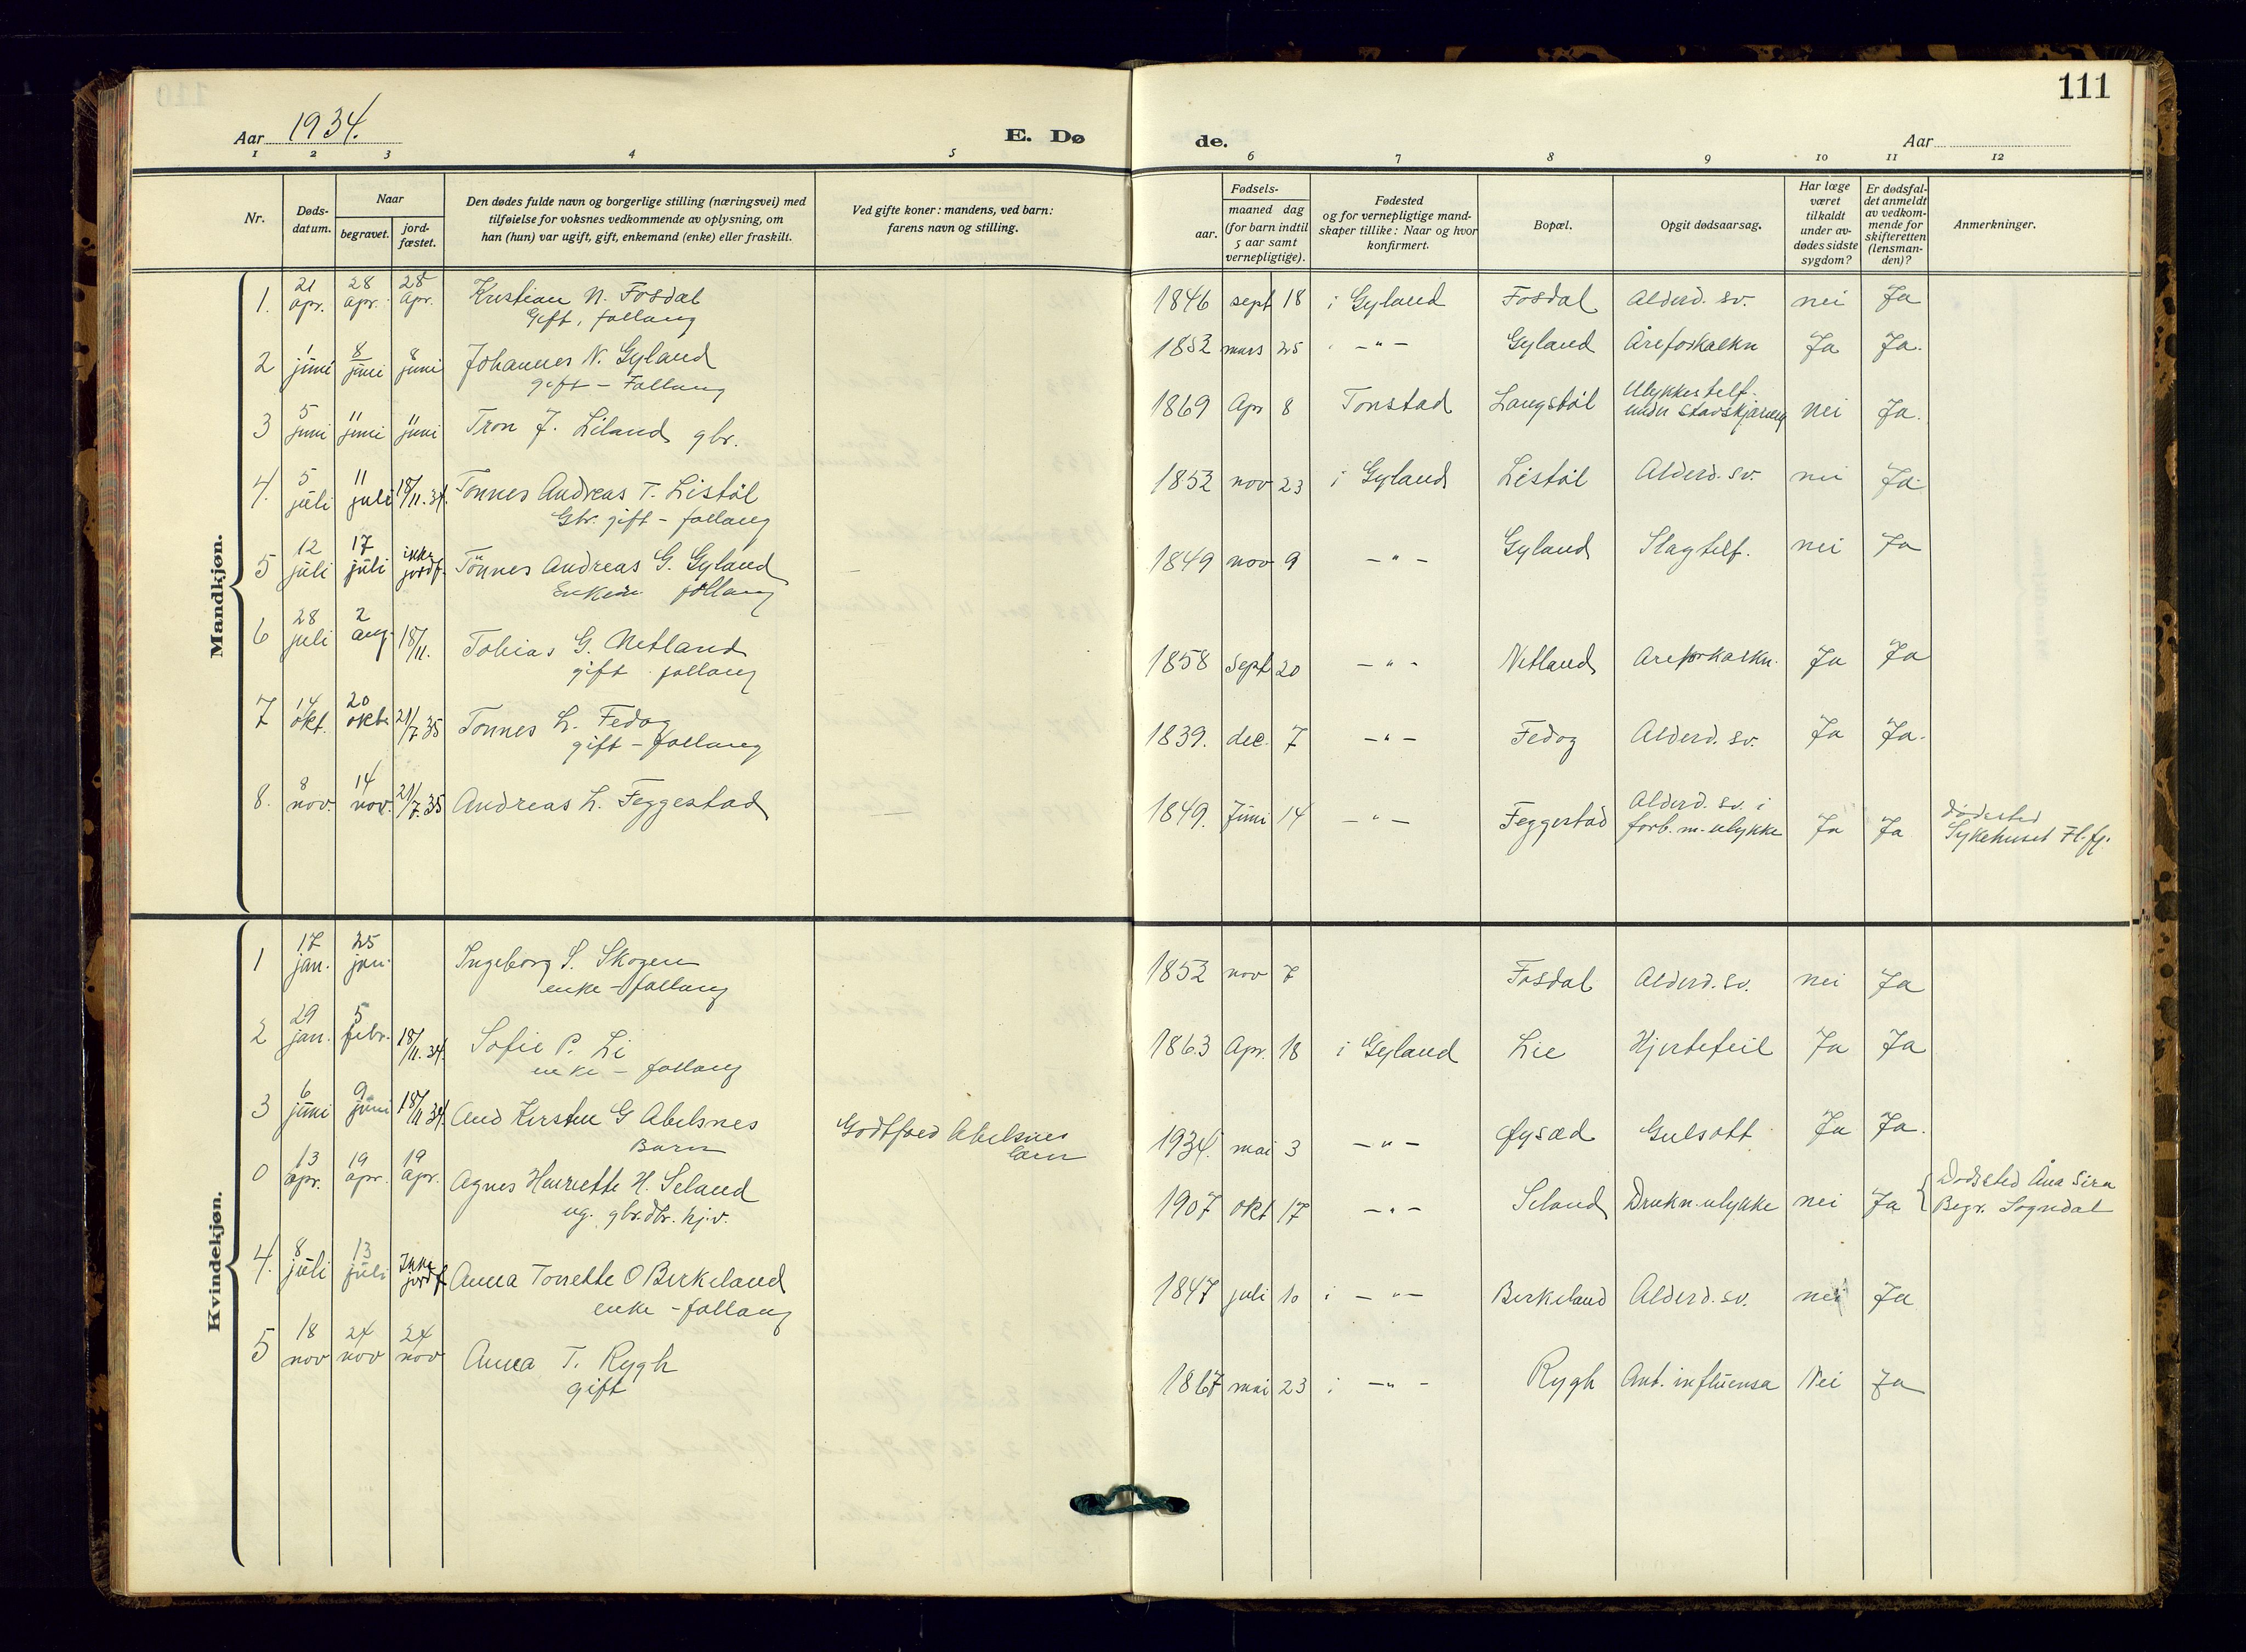 111
Aar 1934.
E. Dø
de.
Aar
1 2 3 4 5 6 7 8 9 10 11 12
Nr.
Døds-
datum.
Naar
begravet.
jord-
fæstet.
Den dødes fulde navn og borgerlige stilling (næringsvei) med
tilføielse for voksnes vedkommende av oplysning, om
han (hun) var ugift, gift, enkemand (enke) eller fraskilt.
Ved gifte koner: mandens, ved barn:
farens navn og stilling.
Fødsels-
aar.
maaned dag
(for barn indtil
5 aar samt
vernepligtige).
Fødested
og for vernepligtige mand-
skaper tillike: Naar og hvor
konfirmert.
Bopæl.
Opgit dødsaarsag.
Har læge
været
tilkaldt
under av-
dødes sidste
sygdom?
Er dødsfal-
det anmeldt
av vedkom-
mende for
skifteretten
(lensman-
den)?
Anmerkninger.
Mandkjøn.
1. 21 apr. 28 apr. 28 apr. Kristian N. Fosdal 1846 sept 18 i Gyland Fosdal Alderd. sv. nei Ja
Gift, follaug
2 1 juni 8 juni 8 juni Johannes N. Gyland 1852 mars 25 - " - Gyland Åreforkalkn Ja Ja.
gift - Follaug
3 5 juni 11 juni 11 juni Tron J. Liland gbr. 1869 Apr 8 Tonstad Langstøl Ulykkestilf. nei Ja.
4. 5 juli 11 juli 18/11.34. Tønnes Andreas T. Listøl 1852 nov 23 i Gyland Listøl Alderd. sv. nei Ja.
Gbr. gift - follaug
5 12 juli 17 juli ikke jordf. Tønnes Andreas G. Gyland 1849 nov 9 - " - Gyland Slagtilf. nei Ja
Enkem. follaug
6 28 juli 2 aug. 18/11. Tobias G. Netland 1858 sept 20 - " - Netland Areforkalkn. Ja Ja
gift follaug
7 14 okt. 20 okt. 21/7.35 Tønnes L. Fedog 1839. dec. 7 - " - Fedog Alderd. sv. Ja Ja.
gift - follaug
8. 8 nov. 14 nov. 21/7.35 Andreas L. Feggestad 1849. Juni 14 - " - Feggestad Alderd. sv. i
forb. m. ulykke Ja Ja dødested
Sykehuset Fl.fj.
Kvindekjøn.
1 17 jan. 25 jan. Ingeborg S. Skogen 1852 nov 7 Fosdal Alderd. sv. nei Ja
enke - follaug
2 29 jan. 5 febr. 18/11.34. Sofie P. Li 1863 Apr. 18 i Gyland Lie Hjertefeil Ja Ja
enke - follaug
3 6 juni 9 juni 18/11 34. Aud Kirsten G Abelsnes Godtfred Abelsnes 1934. mai 3 - " - Øysæd Gulsott Ja Ja.
Barn
0 13 apr. 19 apr. 19 apr. Agnes Henriette H. Seland 1907 okt 17 - " - Seland Drukn. ulykke nei Ja Dødssted Åna Sira
Begr. Sogndal
ug. gbr.dtr. hj.v.
4. 8 juli 13 juli Ikke jordf Anna Tonette O Birkeland 1847 juli 10 i - " - Birkeland Alderd. sv. nei Ja
enke - follaug
5 18 nov 24 nov 24 nov Anna T. Rygh 1867 mai 23 i - " - Rygh Ant. influensa Nei Ja
gift